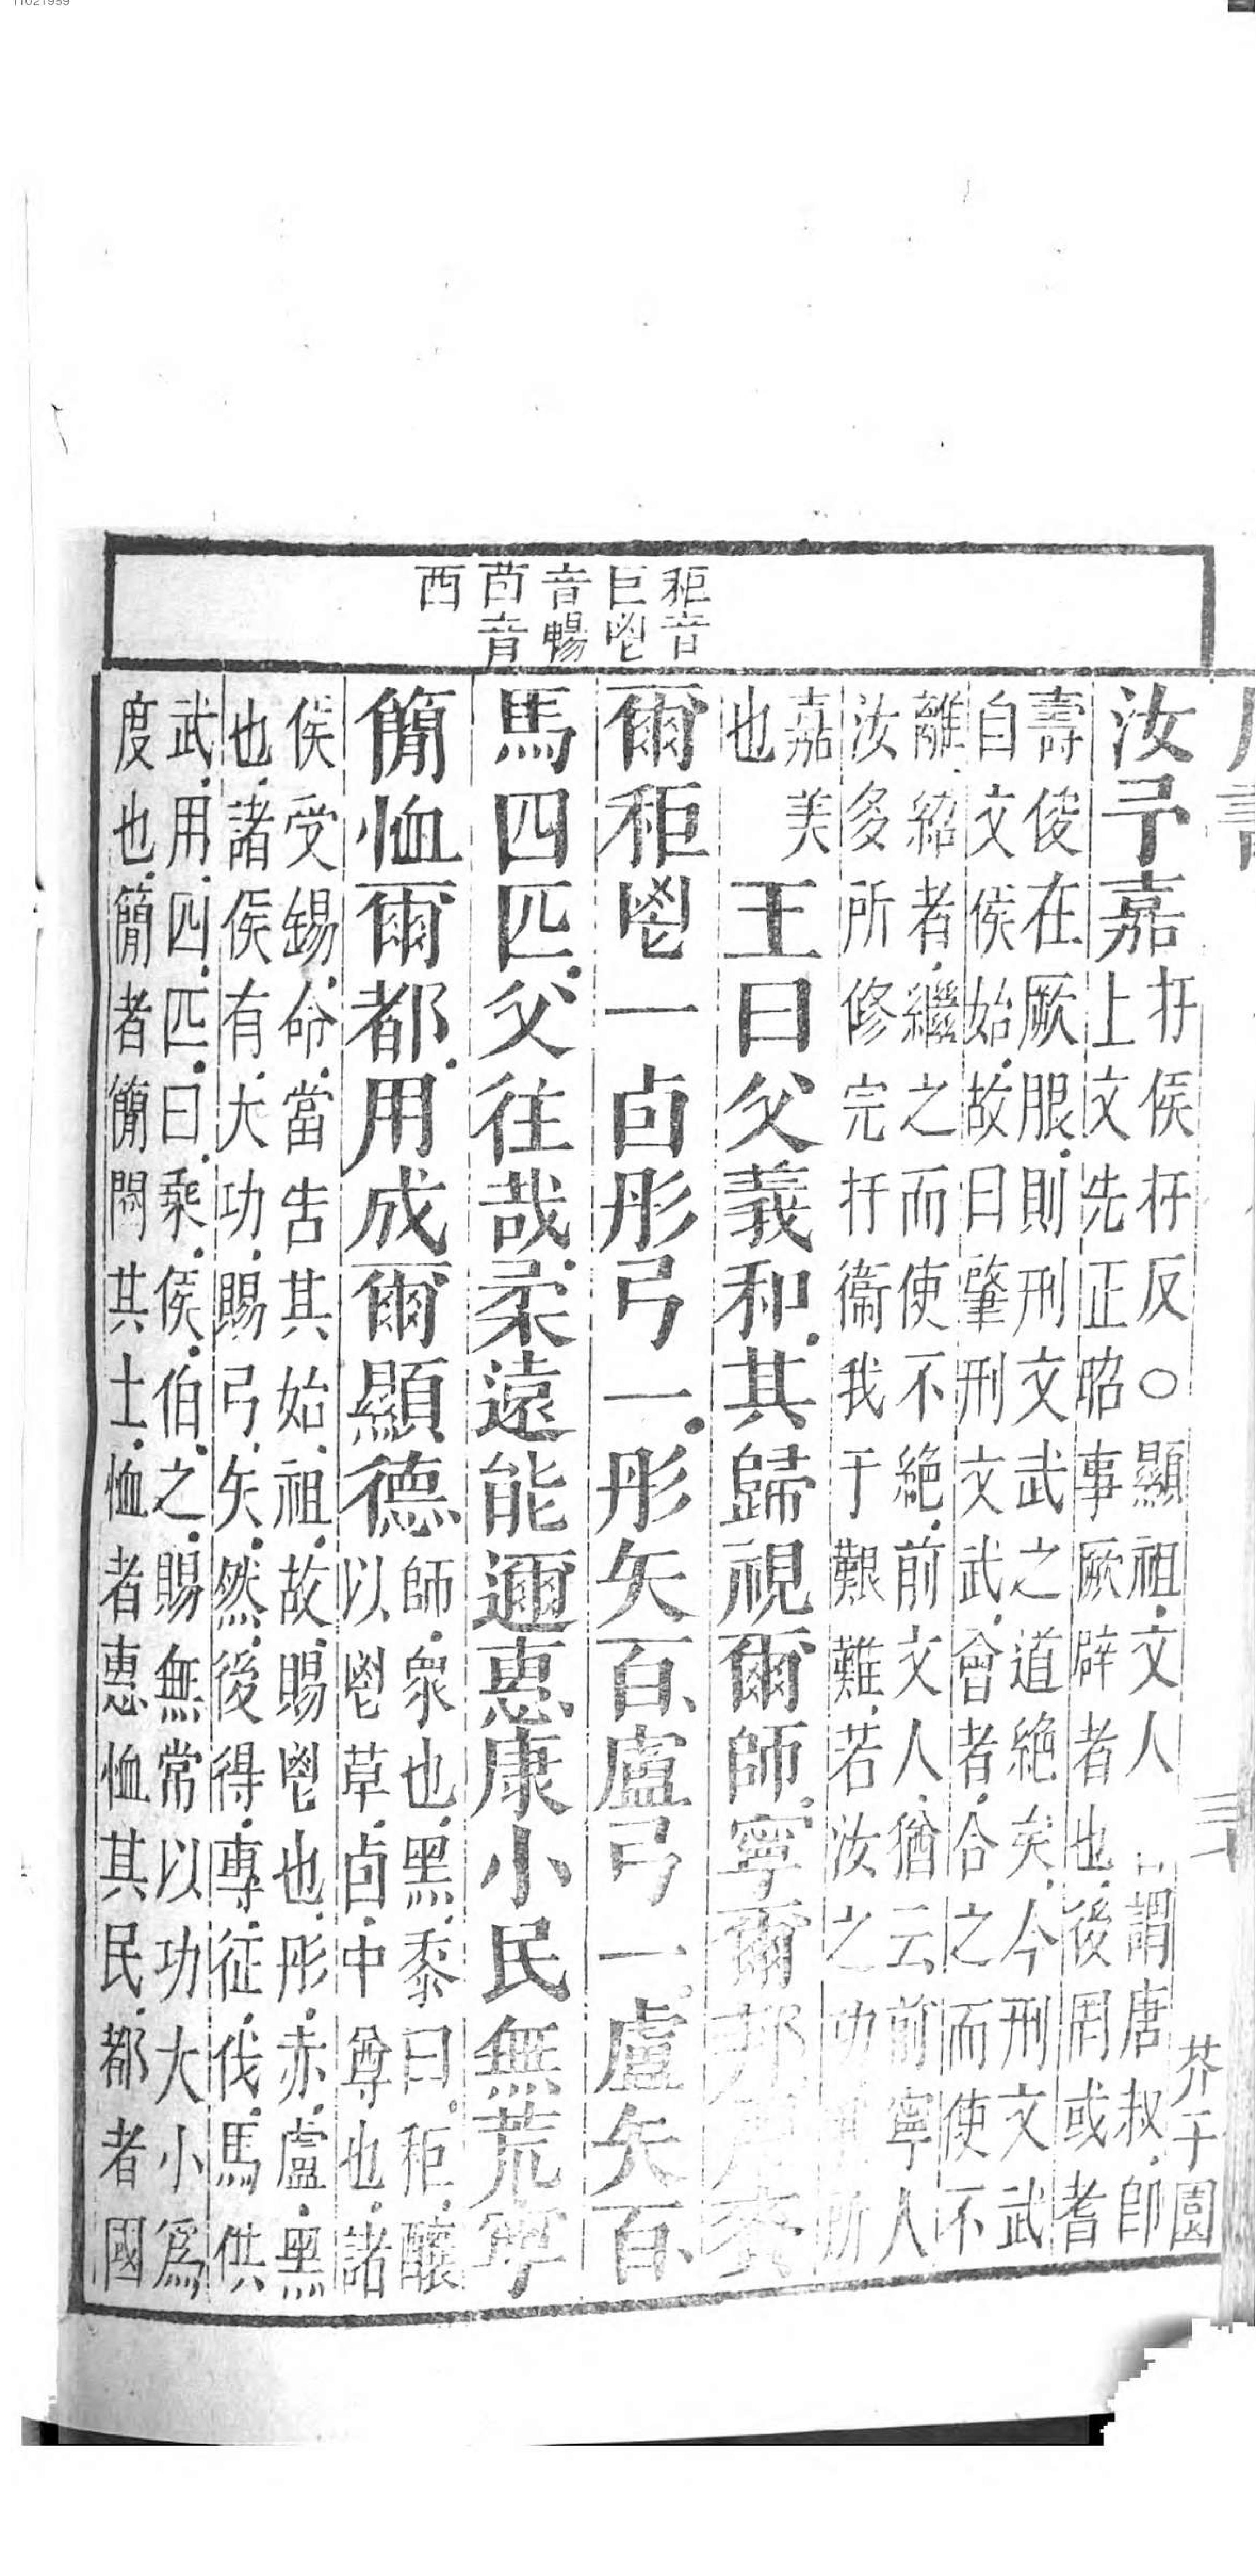 11021959
秬音
巨鬯
音暢
卣音
酉
書
三十
芥子園
汝予嘉
扞侯扞反○顯祖文人謂唐叔師
上文先正昭事厥辟者也後罔或耆
壽俊在厥服則刑文武之道絶矣今刑文武
自文侯始故曰肇刑文武會者合之而使不
離紹者繼之而使不絶前文人猶云前寧人
汝多所修完扞衞我于艱難若汝之功所
嘉美
也
王曰父義和其歸視爾師寧爾邦用賚
爾秬鬯一卣彤弓一彤矢百盧弓一盧矢百
馬四匹父往哉柔遠能邇惠康小民無荒寧
簡恤爾都用成爾顯德
師衆也黑黍曰秬釀
以鬯草卣中尊也諸
侯受錫命當告其始祖故賜鬯也彤赤盧黑
也諸侯有大功賜弓矢然後得專征伐馬供
武用四匹曰乘侯伯之賜無常以功大小爲
度也簡者簡閱其士恤者惠恤其民都者國